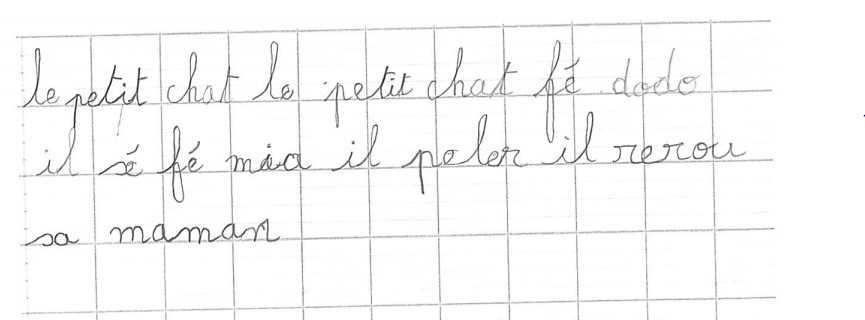 le petit chat le petit chat fé dodo
il sé fé mia il peler il rerou
sa maman